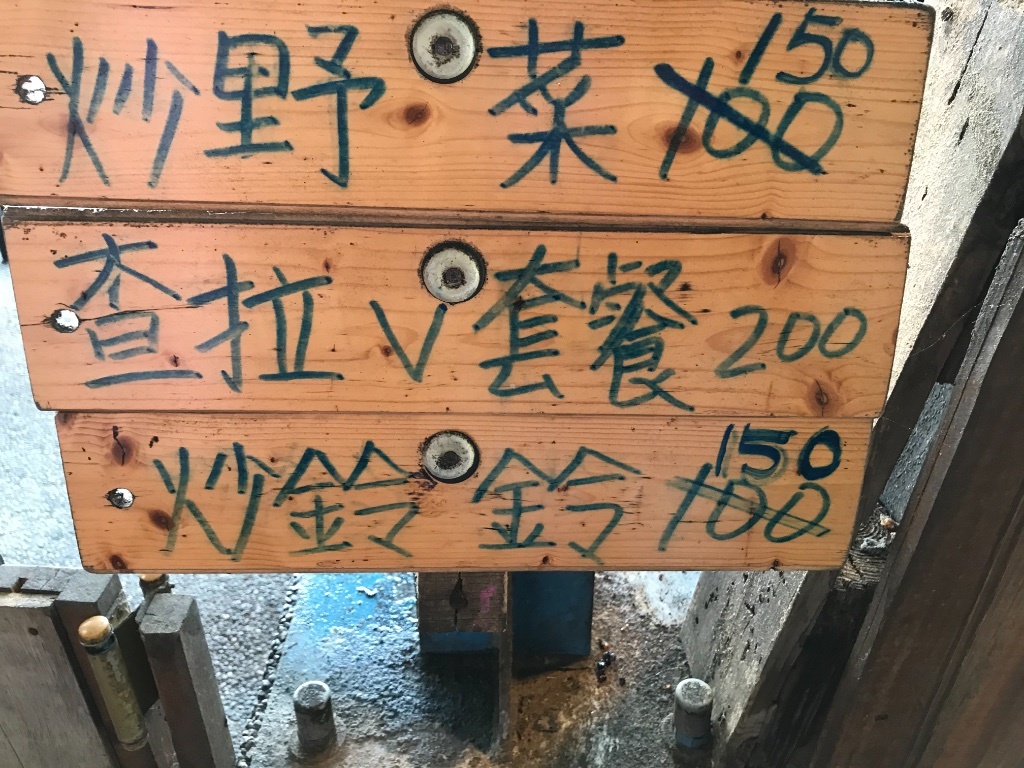 炒野菜 150 100
查拉V套餐 200
炒鈴鈴 150 100